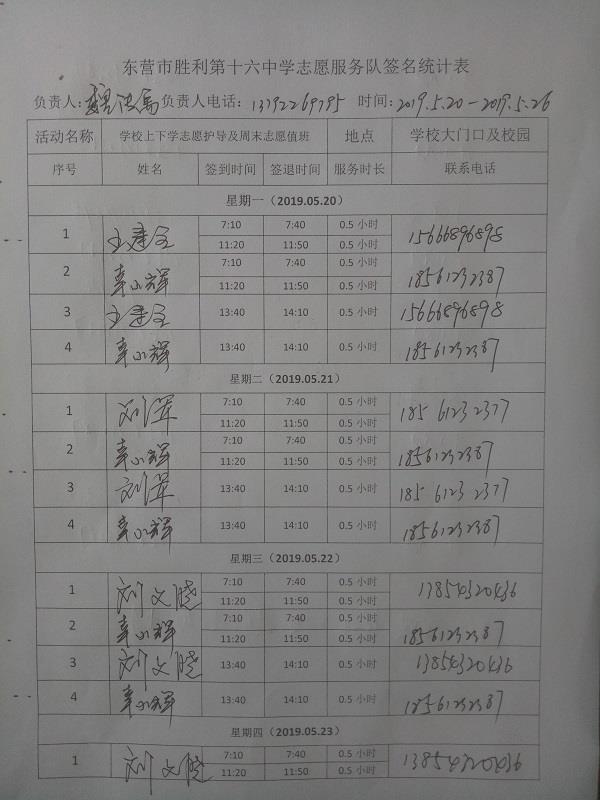 东营市胜利第十六中学志愿服务队签名统计表
负责人: 负责人电话: 13792269795 时间: 2019.5.20-2019.5.26
活动名称 学校上下学志愿护导及周末志愿值班 地点 学校大门口及校园
序号 姓名 签到时间 签退时间 服务时长 联系电话
星期一（2019.05.20）
1 王建全 7:10 7:40 0.5 小时 15666896898
11:20 11:50 0.5 小时
2 辛小辉 7:10 7:40 0.5 小时 18561232387
11:20 11:50 0.5 小时
3 王建全 13:40 14:10 0.5 小时 15666896898
4 辛小辉 13:40 14:10 0.5 小时 18561232387
星期二（2019.05.21）
1 刘军 7:10 7:40 0.5 小时 185 6123 2377
11:20 11:50 0.5 小时
2 辛小辉 7:10 7:40 0.5 小时 18561232387
11:20 11:50 0.5 小时
3 刘军 13:40 14:10 0.5 小时 185 6123 2377
4 辛小辉 13:40 14:10 0.5 小时 18561232387
星期三（2019.05.22）
1 刘文晓 7:10 7:40 0.5 小时 13854320436
11:20 11:50 0.5 小时
2 辛小辉 7:10 7:40 0.5 小时 18561232387
11:20 11:50 0.5 小时
3 刘文晓 13:40 14:10 0.5 小时 13854320436
4 辛小辉 13:40 14:10 0.5 小时 18561232387
星期四（2019.05.23）
1 刘文晓 7:10 7:40 0.5 小时 13854320436
11:20 11:50 0.5 小时